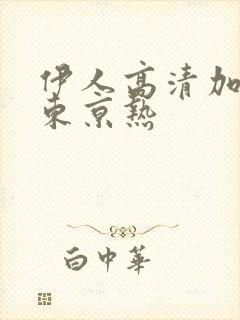 伊人高清加
东京热
白中華